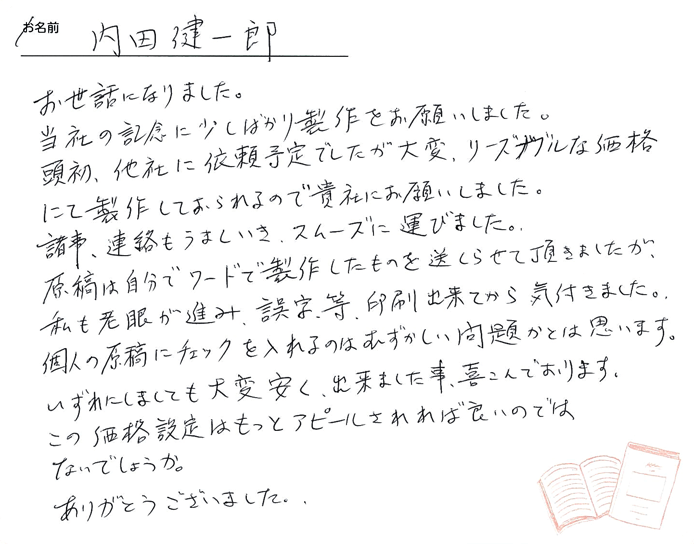 お名前 内田健一郎
お世話になりました。
当社の記念に少しばかり製作をお願いしました。
頭初、他社に依頼予定でしたが大変、リーズナブルな価格
にて製作しておられるので貴社にお願いしました。
諸事、連絡もうましいき、スムーズに運びました。
原稿は自分でワードで製作したものを送しらせて頂きましたが、
私も老眼が進み、誤字、等、印刷出来てから気付きました。
個人の原稿にチェックを入れるのはむずかしい問題かとは思います。
いずれにしましても大変安く、出来ました事、喜こんでおります。
この価格設定はもっとアピールされれば良いのでは
ないでしょうか。
ありがとうございました。